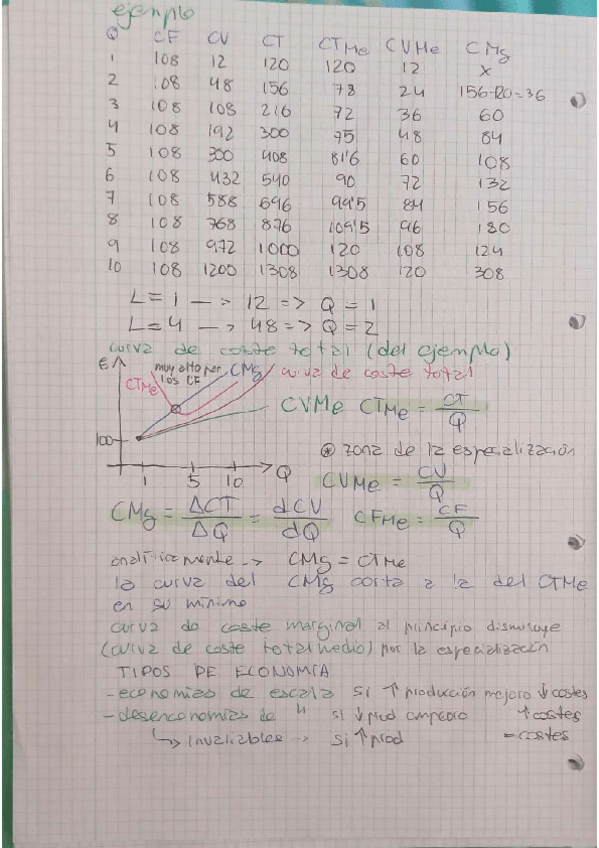 ejemplo
Q CF CV CT CTMe CVMe CMg
1 108 12 120 120 12 x
2 108 48 156 78 24 156-120=36
3 108 108 216 72 36 60
4 108 192 300 75 48 84
5 108 300 408 81'6 60 108
6 108 432 540 90 72 132
7 108 588 696 99'5 84 156
8 108 768 876 109'5 96 180
9 108 972 1000 120 108 124
10 108 1200 1308 1308 120 308
L=1 —> 12 => Q=1
L=4 —> 48 => Q=2
curva de coste total (del ejemplo)
€ muy alto por los CF CMg curva de coste total
CTMe
CVMe CTMe = CT/Q
100
⊛ zona de la especialización
1 5 10 Q CVMe = CV/Q
CMg = ΔCT/ΔQ = dCV/dQ CFMe = CF/Q
analíticamente -> CMg = CTMe
la curva del CMg corta a la del CTMe
en su mínimo
curva de coste marginal al principio disminuye
(curva de coste total medio) por la especialización
TIPOS DE ECONOMÍA
- economías de escala si ↑ producción mejoro ↓ costes
- deseconomías de " si ↓ prod empeoro ↑ costes
↳ invariables -> si ↑ prod = costes